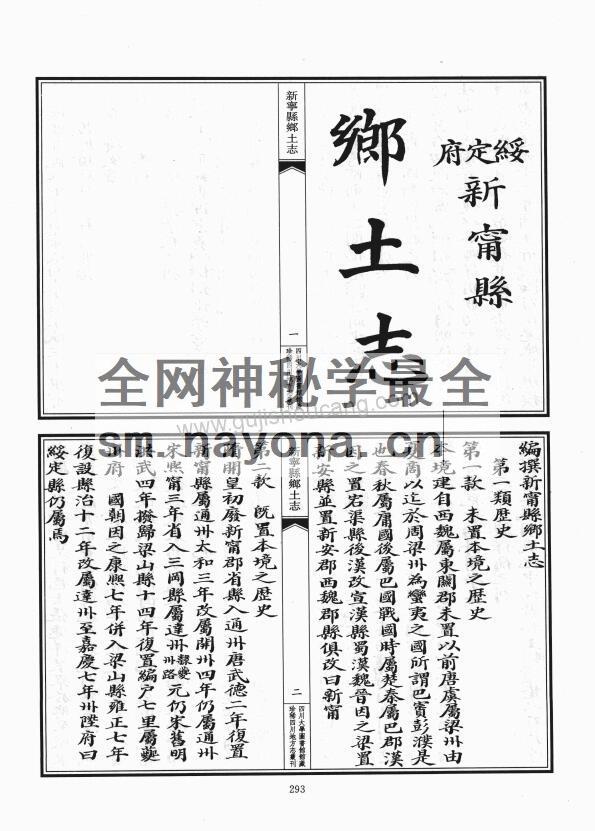 綏定府
新甯縣
鄉土志
新寧縣鄉土志
一
全网神秘学最全
www.gujishoucang.com
sm.nayona.cn
編撰新甯縣鄉土志
第一類歷史
第一款 未置本境之歷史
本境建自西魏屬東關郡未置以前唐虞屬梁州由
夏商以迄於周梁州為蠻夷之國所謂巴賨彭濮是
也春秋屬庸國後屬巴國戰國時屬楚秦屬巴郡漢
因之置宕渠縣後漢改宣漢縣蜀漢魏晉因之梁置
新安縣並置新安郡西魏郡縣俱改曰新甯
新寧縣鄉土志
二
四川大學圖書館館藏
珍稀四川地方志叢刊
第二款 既置本境之歷史
隋開皇初廢新甯郡省縣入通州唐武德二年復置
新甯縣屬通州太和三年改屬開州四年仍屬通州
宋熙甯三年省入三岡縣屬達州夔州路元仍宋舊明
洪武四年撥歸梁山縣十四年復置編户七里屬夔
州府 國朝因之康熙七年併入梁山縣雍正七年
復設縣治十二年改屬達州至嘉慶七年州陞府曰
綏定縣仍屬焉
293